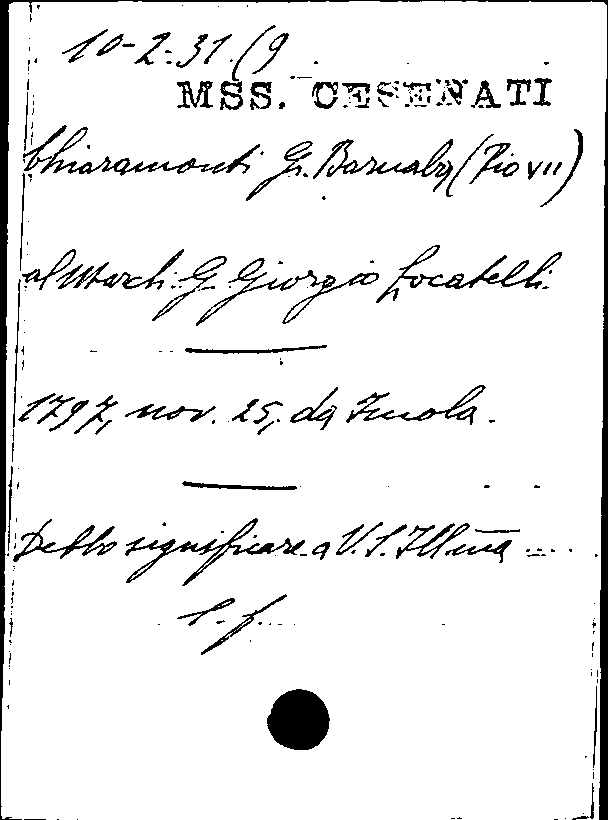 10-2-31(9
MSS. CESENATI
Chiaramonti G. Barnaba (Pio VII)
al March. G. Giorgio Locatelli.
1797, nov. 25, da Imola.
Debbo significare a V. S. Illma ....
l. f.